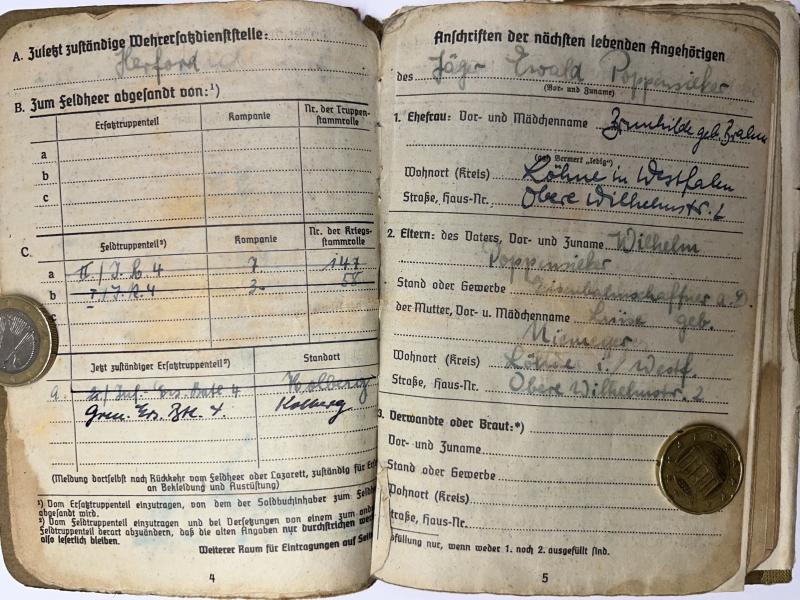 A. Zuletzt zuständige Wehrersatzdienststelle:
Herford
B. Zum Feldheer abgesandt von:¹)
Ersatztruppenteil Kompanie Nr. der Truppen-
stammrolle
a
b
c
C.
Feldtruppenteil²) Kompanie Nr. der Kriegs-
stammrolle
a II/J.R.4 7 147
b I/J.R.4 3. 58
c
Jetzt zuständiger Ersatztruppenteil²) Standort
a. Kolberg
Gren. Ers. Btl. 4. Kolberg
(Meldung dortselbst nach Rückkehr vom Feldheer oder Lazarett, zuständig für
an Bekleidung und Ausrüstung)
¹) Vom Ersatztruppenteil einzutragen, von dem der Soldbuchinhaber zum
abgesandt wird.
²) Vom Feldtruppenteil einzutragen und bei Versetzungen von einem zum
Feldtruppenteil derart abzuändern, daß die alten Angaben nur durchstrichen
also leserlich bleiben.
Weiterer Raum für Eintragungen auf
4
Anschriften der nächsten lebenden Angehörigen
des Jäger Ewald Poppensieker
(Vor- und Zuname)
1. Ehefrau: Vor- und Mädchenname geb.
(ggf. Vermerk „ledig")
Wohnort (Kreis) Löhne in Westfalen
Straße, Haus-Nr. Obere Wilhelmstr.
2. Eltern: des Vaters, Vor- und Zuname Wilhelm
Poppensieker
Stand oder Gewerbe Eisenbahnschaffner a.D.
der Mutter, Vor- u. Mädchenname Luise geb.
Niemeyer
Wohnort (Kreis) Löhne i./Westf.
Straße, Haus-Nr. Obere Wilhelmstr. 2
3. Verwandte oder Braut:*)
Vor- und Zuname
Stand oder Gewerbe
Wohnort (Kreis)
Straße, Haus-Nr.
nur, wenn weder 1. noch 2. ausgefüllt sind.
5